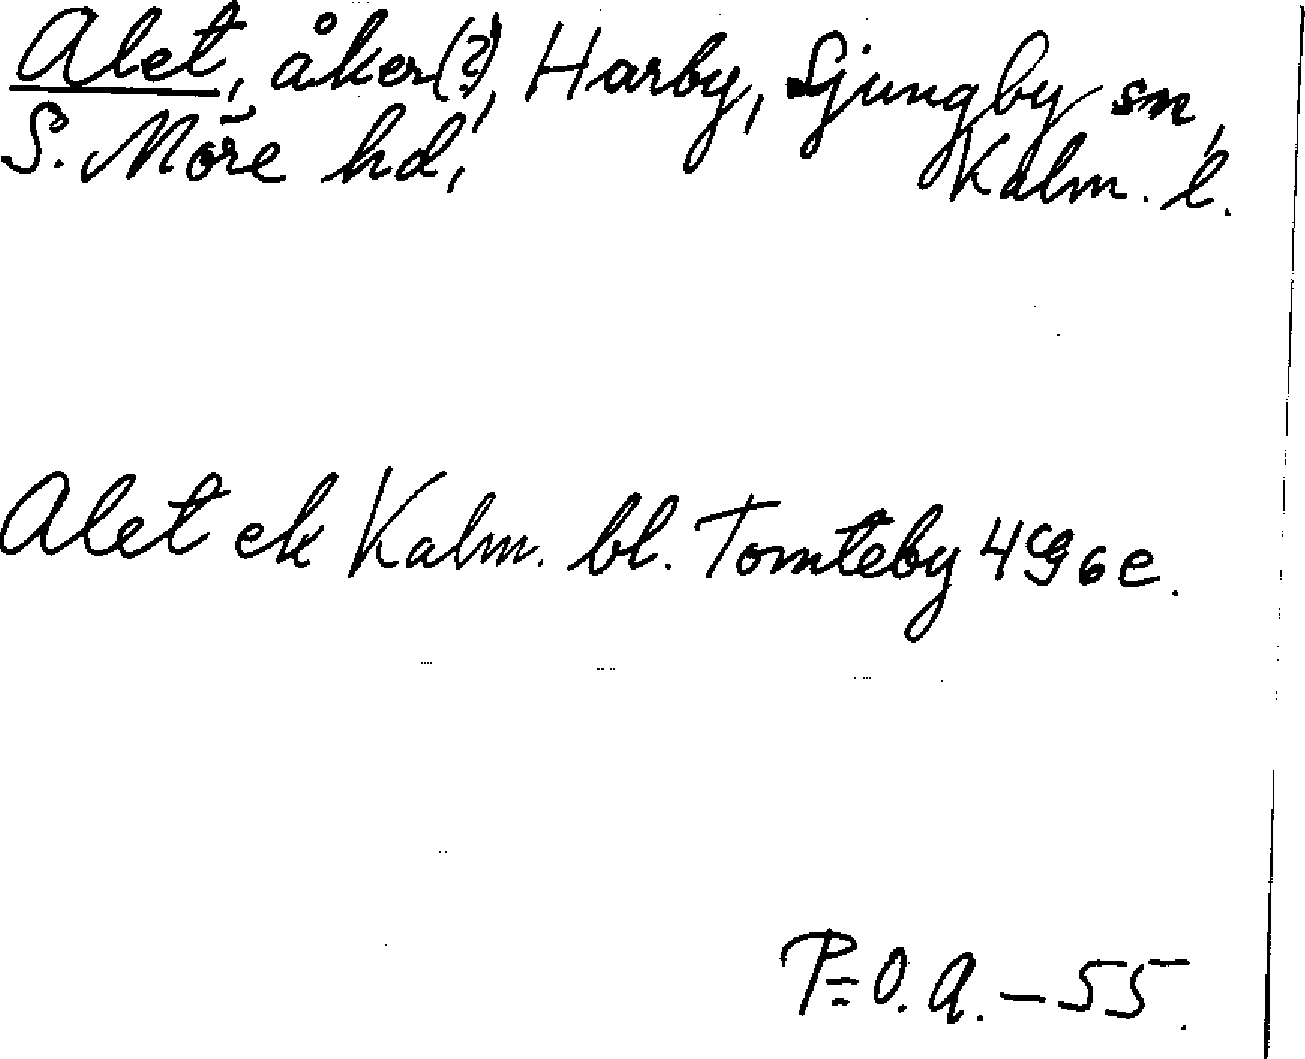 Alet, åker(?), Harby, Ljungby sn,
S. Möre hd, Kalm. l.
Alet ek Kalm. bl. Tomteby 4g6e.
P=O.A.-55.